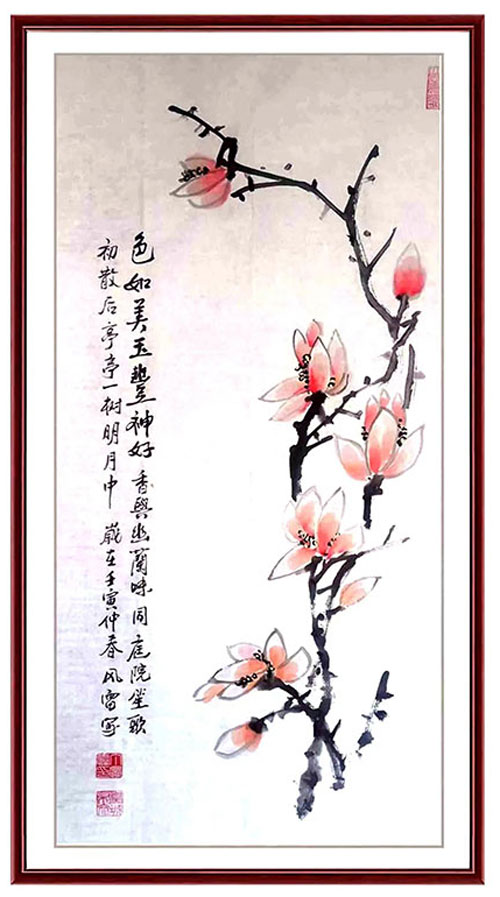 色如美玉豐神好香與幽蘭味同庭院笙歌
初散后亭亭一树明月中 歲在壬寅仲春风